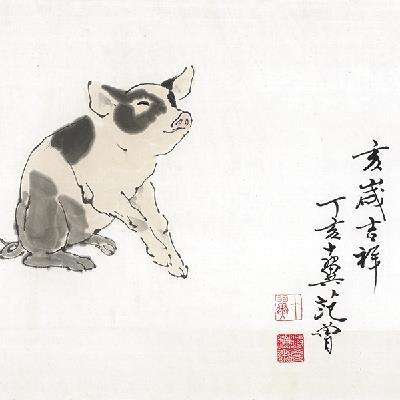 亥歲吉祥
丁亥十翼范曾